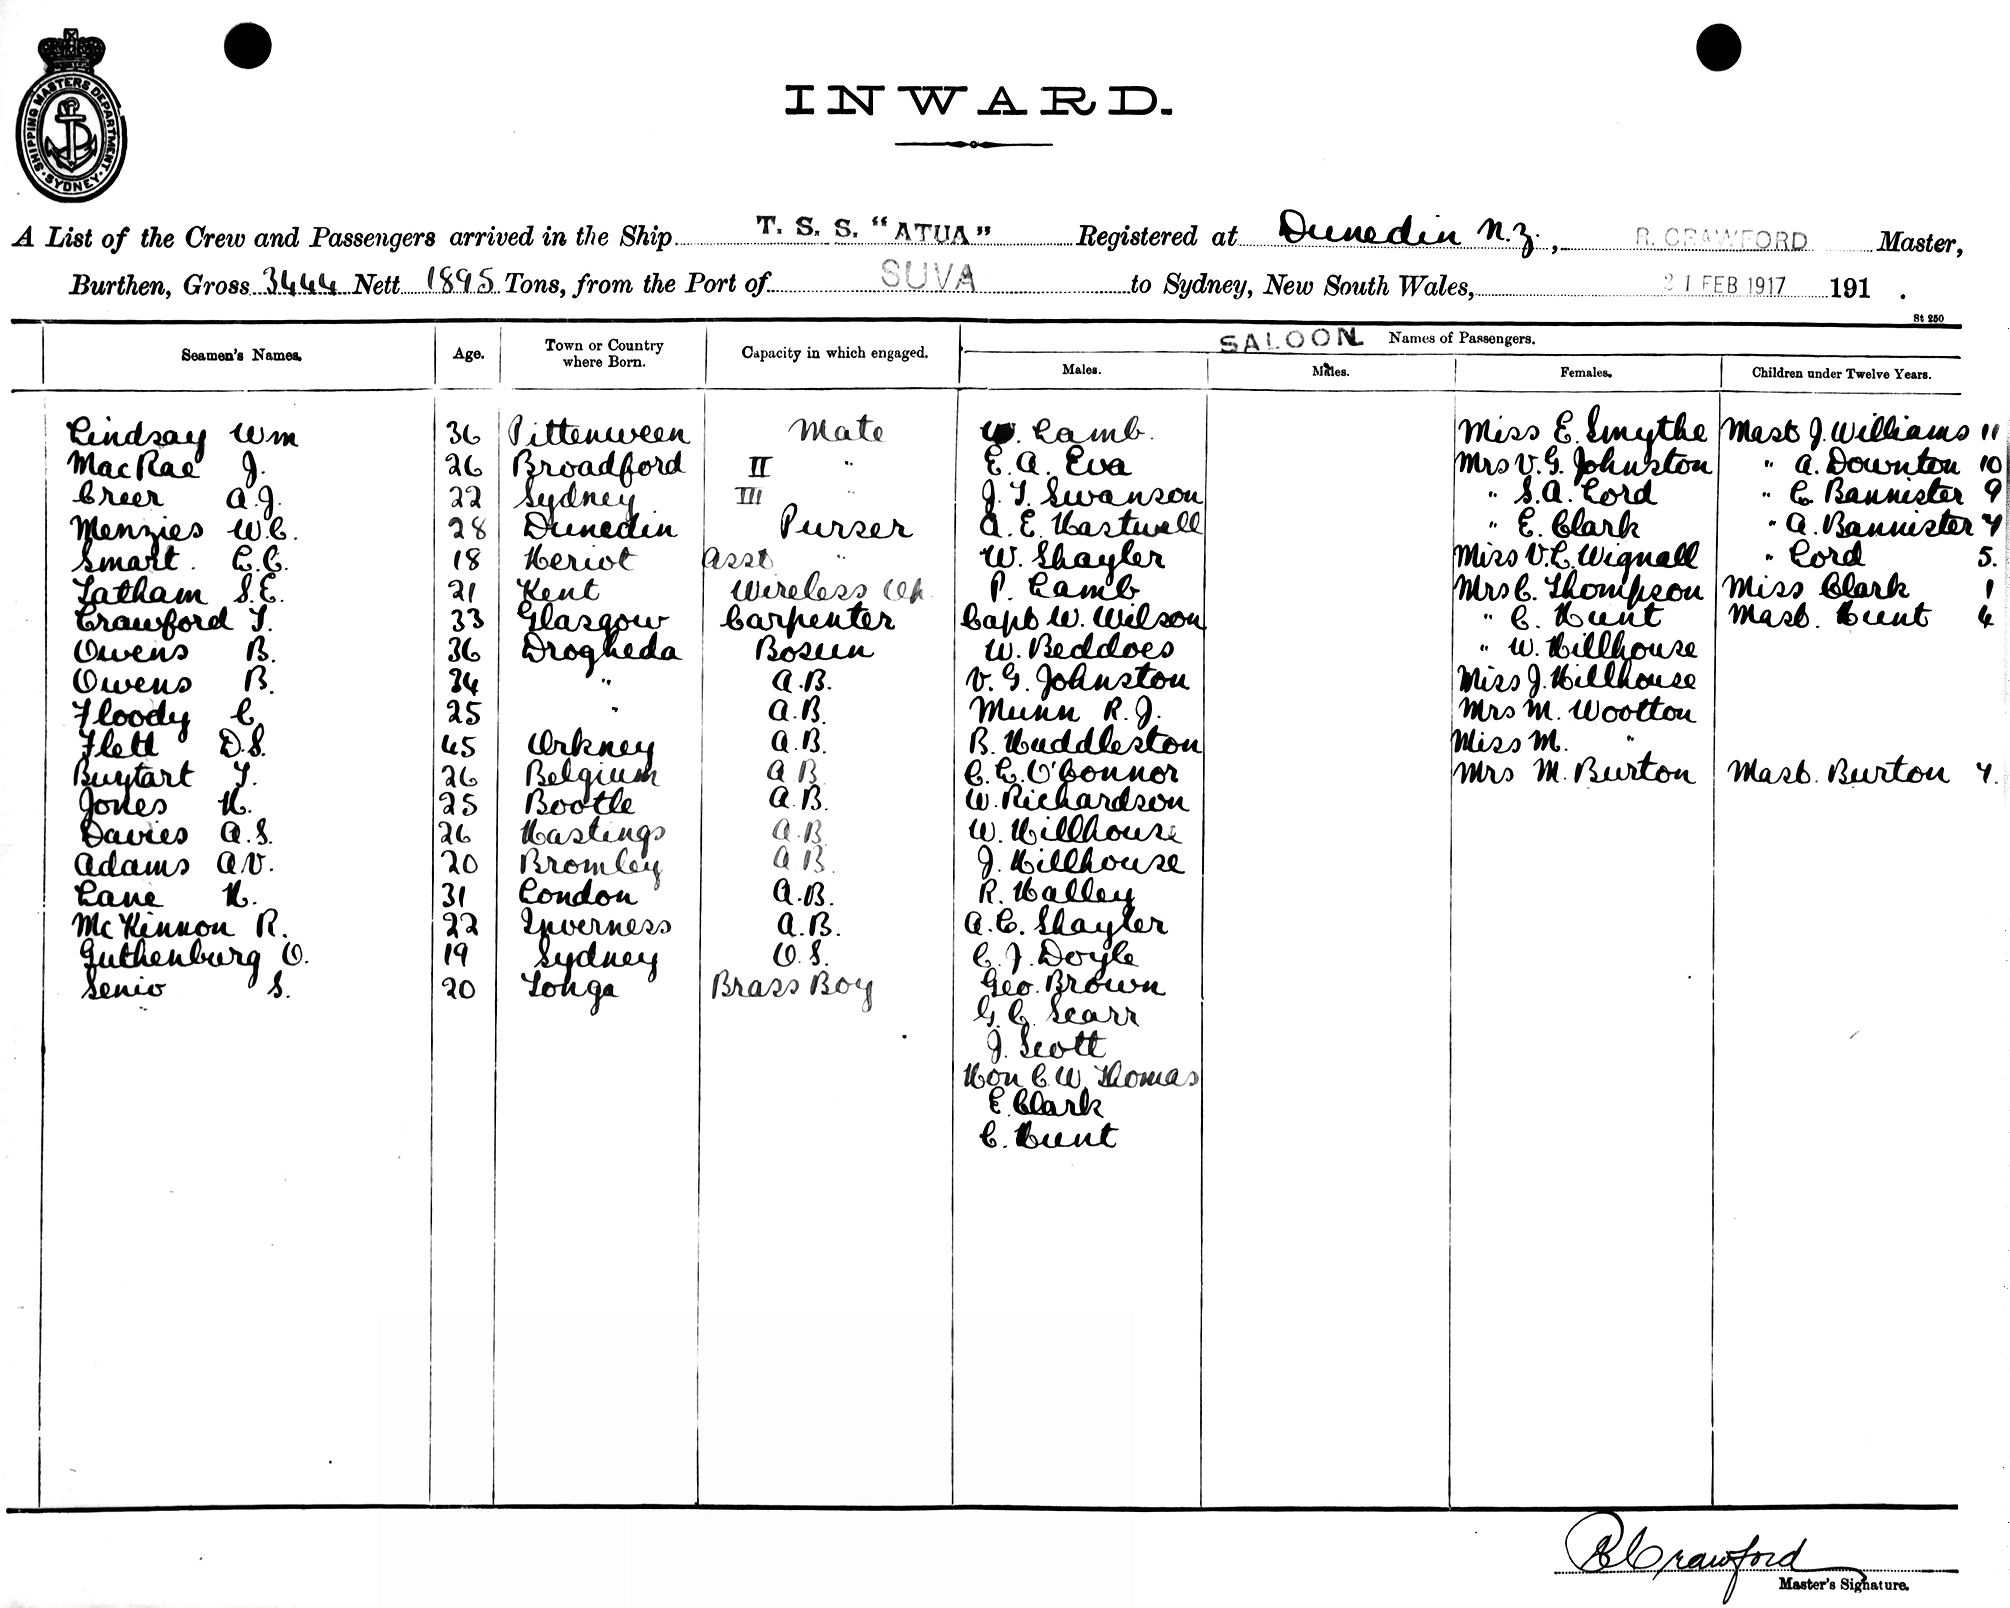 SHIPPING MASTERS DEPARTMENT
SYDNEY
INWARD.
A List of the Crew and Passengers arrived in the Ship T. S. S. "ATUA" Registered at Dunedin N.Z., R. CRAWFORD Master,
Burthen, Gross 3444 Nett 1895 Tons, from the Port of SUVA to Sydney, New South Wales, 21 FEB 1917 191 .
St 250
SALOON Names of Passengers.
Seamen's Names. Age. Town or Country where Born. Capacity in which engaged. Males. Males. Females. Children under Twelve Years.
Lindsay Wm 36 Pittenween Mate W. Lamb. Miss E. Smythe Mast J. Williams 11
MacRae J. 26 Broadford II " E. A. Eva Mrs V. G. Johnston " A. Downton 10
Creer A. J. 22 Sydney III " J. T. Swanson " S. A. Lord " C. Bannister 9
Menzies W. C. 28 Dunedin Purser A. E. Hastwell " E. Clark " A. Bannister 7
Smart. L. C. 18 Heriot Asst " W. Shayler Miss V. L. Wignall " Lord 5.
Latham S. E. 21 Kent Wireless Op. P. Lamb Mrs C. Thompson Miss Clark 1
Crawford T. 33 Glasgow Carpenter Capt W. Wilson " C. Hunt Mast. Hunt 4
Owens B. 36 Drogheda Bosun W. Beddoes " W. Hillhouse
Owens B. 34 " A.B. V. G. Johnston Miss J. Hillhouse
Floody C. 25 " A.B. Munn R. J. Mrs M. Wootton
Flett D. S. 45 Orkney A.B. B. Huddleston Miss M. "
Buytart T. 26 Belgium A B. C. L. O'Connor Mrs M. Burton Mast. Burton 7.
Jones H. 25 Bootle A.B. W. Richardson
Davies A. S. 26 Hastings A.B W. Hillhouse
Adams A.V. 20 Bromley A B. J. Hillhouse
Lane H. 31 London A.B. R. Halley
McKinnon R. 22 Inverness A.B. A. C. Shayler
Guthenburg O. 19 Sydney O. S. C. J. Doyle
Senio S. 20 Tonga Brass Boy Geo. Brown
G. C. Scarr
J. Scott
Hon C. W. Thomas
E. Clark
C. Hunt
R Crawford
Master's Signature.